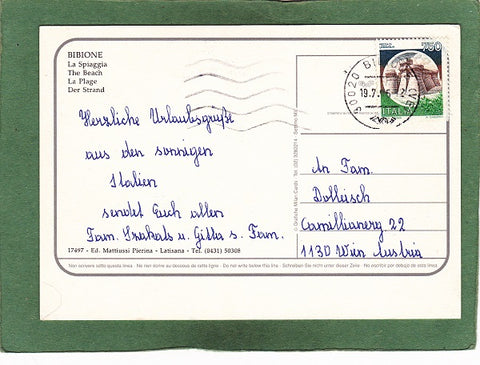 BIBIONE
La Spiaggia
The Beach
La Plage
Der Strand
Herzliche Urlaubsgrüße
aus den sonnigen
Italien
sendet Euch allen
Fam. Szakals u. Gitta s. Fam.
17497 - Ed. Mattiussi Pierina - Latisana - Tel. (0431) 50308
750
30020 BIBIONE
19.7.
ITALIA
An Fam.
Dollisch
Camillianerg 22
1130 Wien Austria
Non scrivere sotto questa linea - Ne rien écrire au dessous de cette ligne - Do not write below this line - Schreiben Sie nicht unter dieser Zeile - No escribir por debajo de esta línea